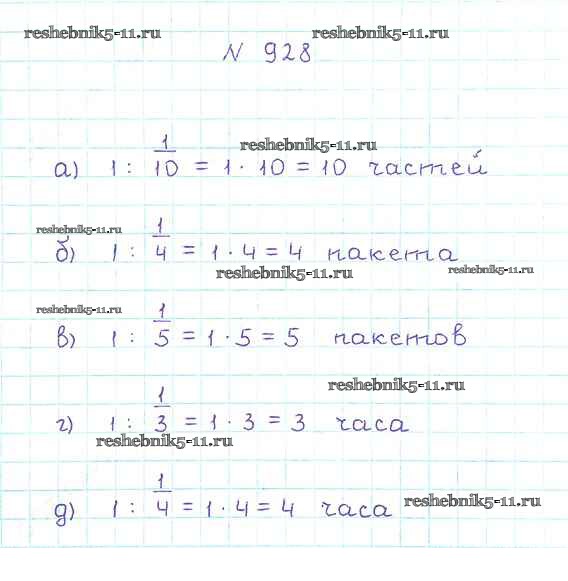 reshebnik5-11.ru reshebnik5-11.ru
N 928
reshebnik5-11.ru
а) 1 : 1/10 = 1 · 10 = 10 частей
reshebnik5-11.ru
б) 1 : 1/4 = 1 · 4 = 4 пакета
reshebnik5-11.ru reshebnik5-11.ru
reshebnik5-11.ru
в) 1 : 1/5 = 1 · 5 = 5 пакетов
reshebnik5-11.ru
г) 1 : 1/3 = 1 · 3 = 3 часа
reshebnik5-11.ru
д) 1 : 1/4 = 1 · 4 = 4 часа reshebnik5-11.ru